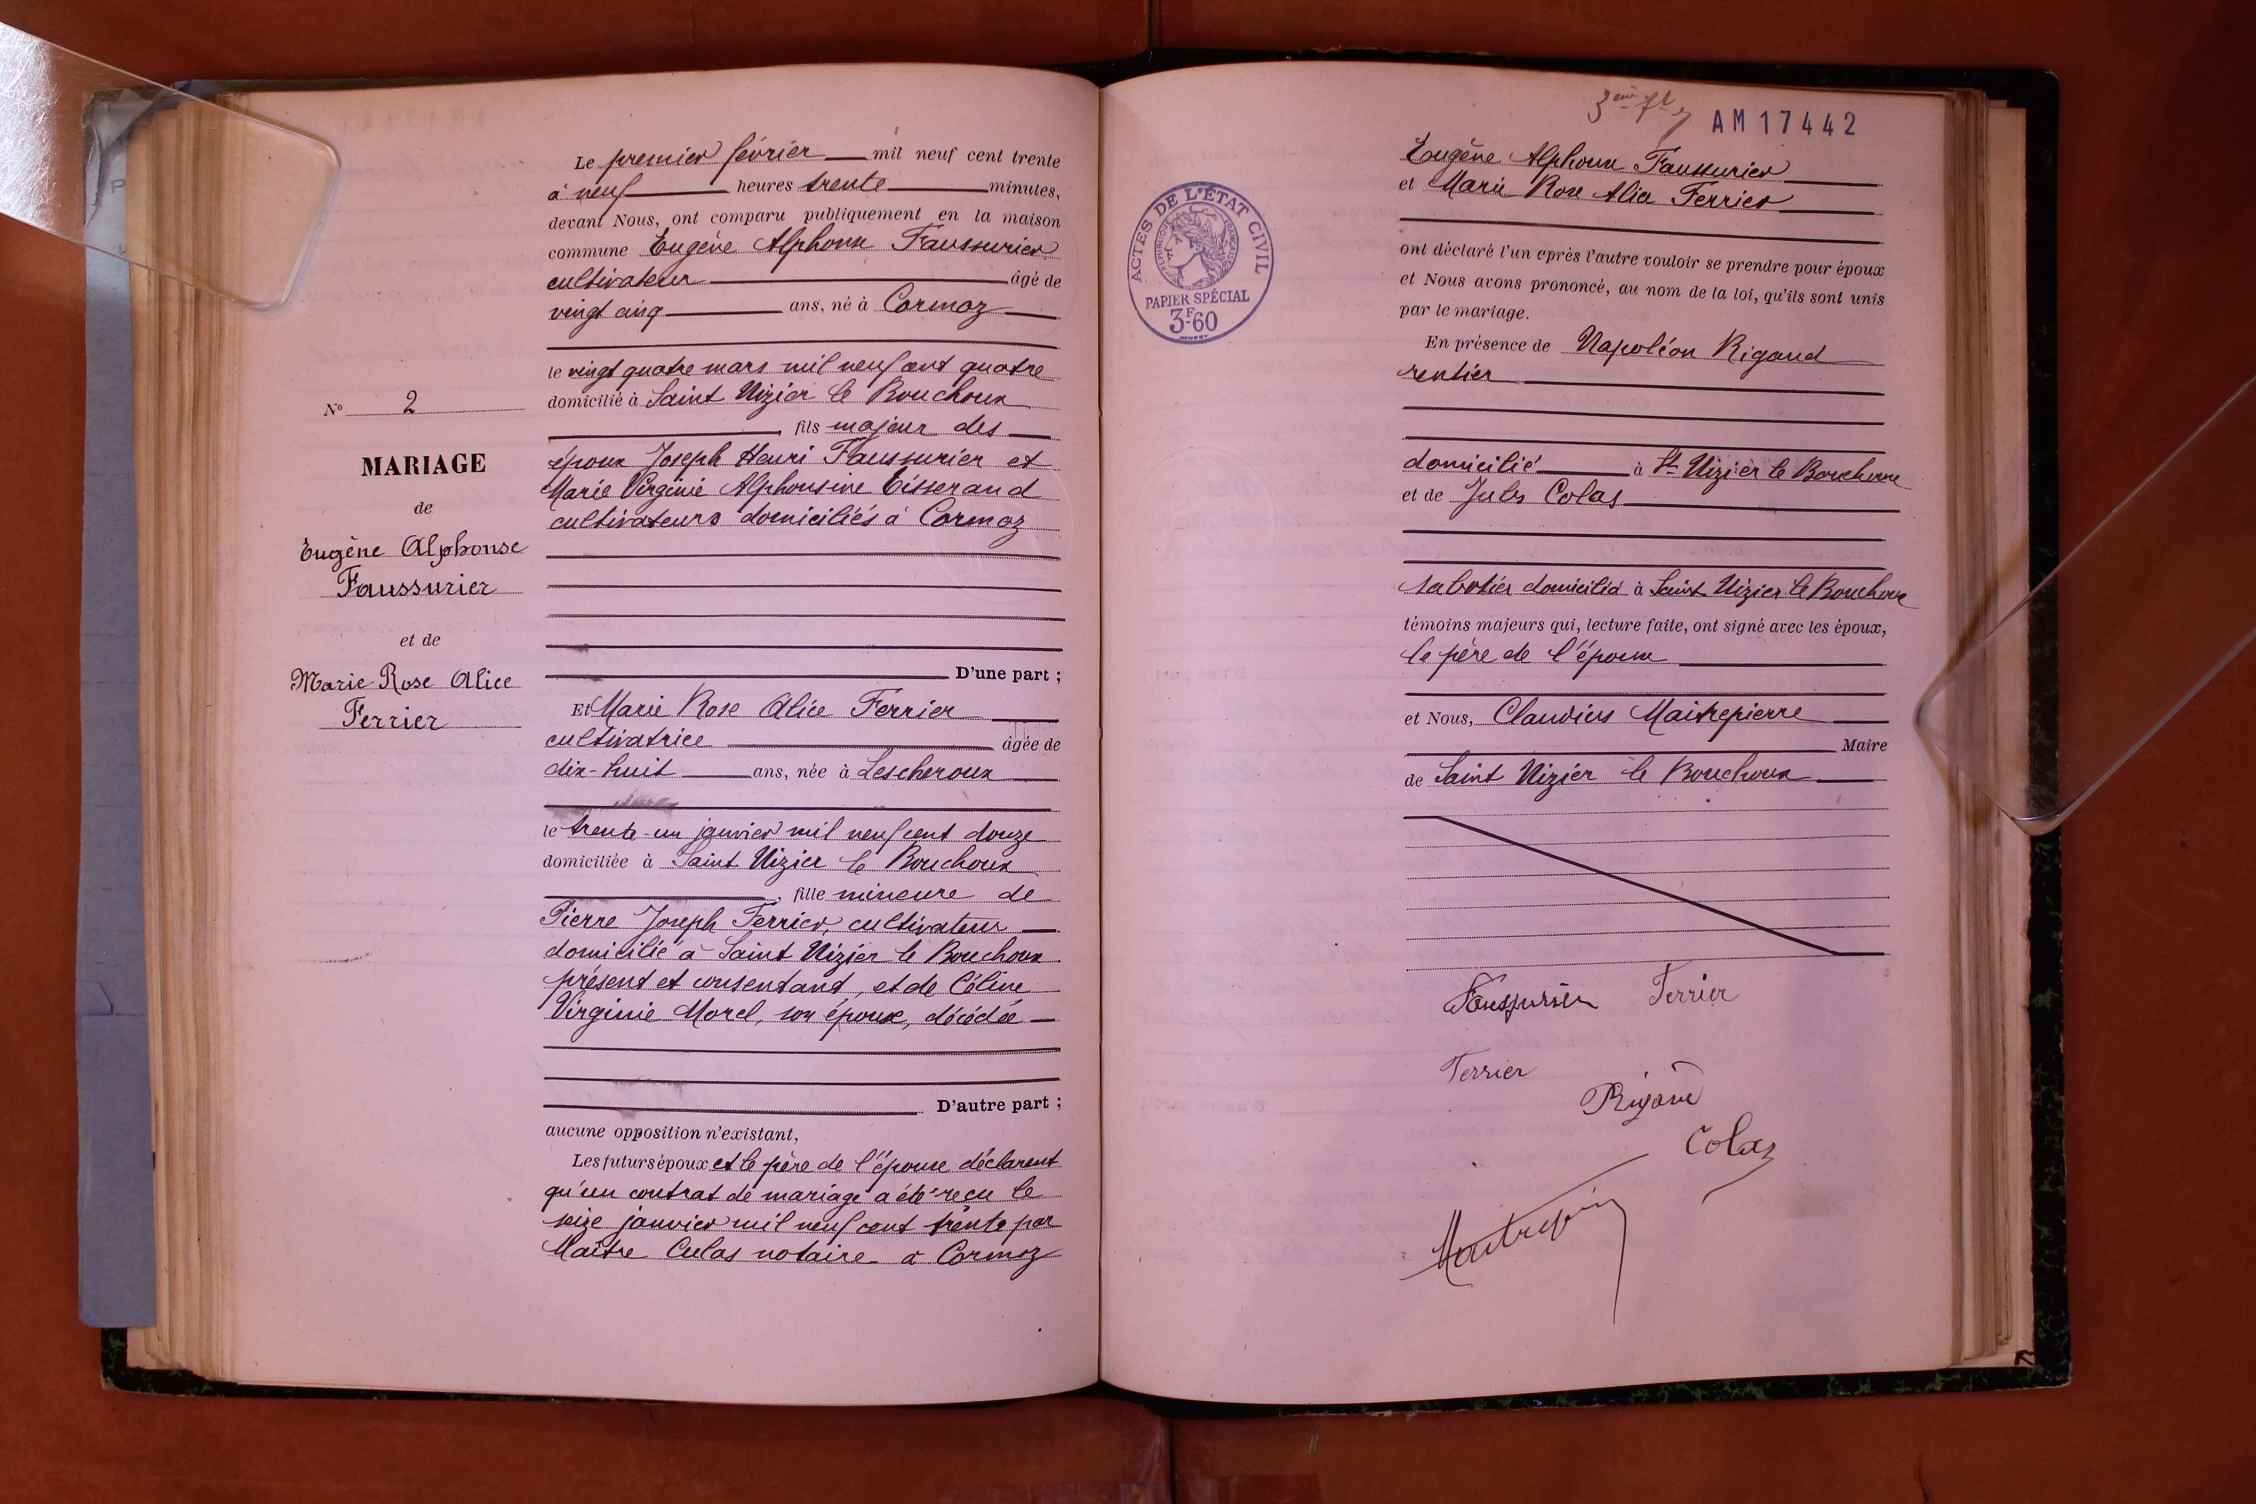 Le premier février mil neuf cent trente
à neuf heures trente minutes,
devant Nous, ont comparu publiquement en la maison
commune Eugène Alphonse Faussurier
cultivateur âgé de
vingt cinq ans, né à Cormoz
le vingt quatre mars mil neuf cent quatre
domicilié à Saint Nizier le Bouchoux
fils majeur des
époux Joseph Henri Faussurier et
Marie Virginie Alphonsine Tisserand
cultivateurs domiciliés à Cormoz
D'une part ;
Et Marie Rose Alice Ferrier
cultivatrice âgée de
dix-huit ans, née à Lescheroux
le trente-un janvier mil neuf cent douze
domiciliée à Saint Nizier le Bouchoux
, fille mineure de
Pierre Joseph Ferrier, cultivateur
domicilié à Saint Nizier le Bouchoux
présent et consentant, et de Céline
Virginie Morel, son épouse, décédée
D'autre part ;
aucune opposition n'existant,
Les futurs époux et le père de l'épouse déclarent
qu'un contrat de mariage a été reçu le
seize janvier mil neuf cent trente par
Maître Culas notaire à Cormoz
N° 2
MARIAGE
de
Eugène Alphonse
Faussurier
et de
Marie-Rose Alice
Ferrier
AM17442
ACTES DE L'ÉTAT CIVIL
RÉPUBLIQUE FRANÇAISE
PAPIER SPÉCIAL
3F60
Eugène Alphonse Faussurier
et Marie Rose Alice Ferrier
ont déclaré l'un après l'autre vouloir se prendre pour époux
et Nous avons prononcé, au nom de la loi, qu'ils sont unis
par le mariage.
En présence de Napoléon Rigaud
rentier
domicilié à St Nizier le Bouchoux
et de Jules Colas
sabotier domicilié à Saint Nizier le Bouchoux
témoins majeurs qui, lecture faite, ont signé avec les époux,
le père de l'épouse
et Nous, Claudius Maitrepierre
Maire
de Saint Nizier le Bouchoux
Faussurier Ferrier
Ferrier
Rigaud
Colas
Maitrepierre